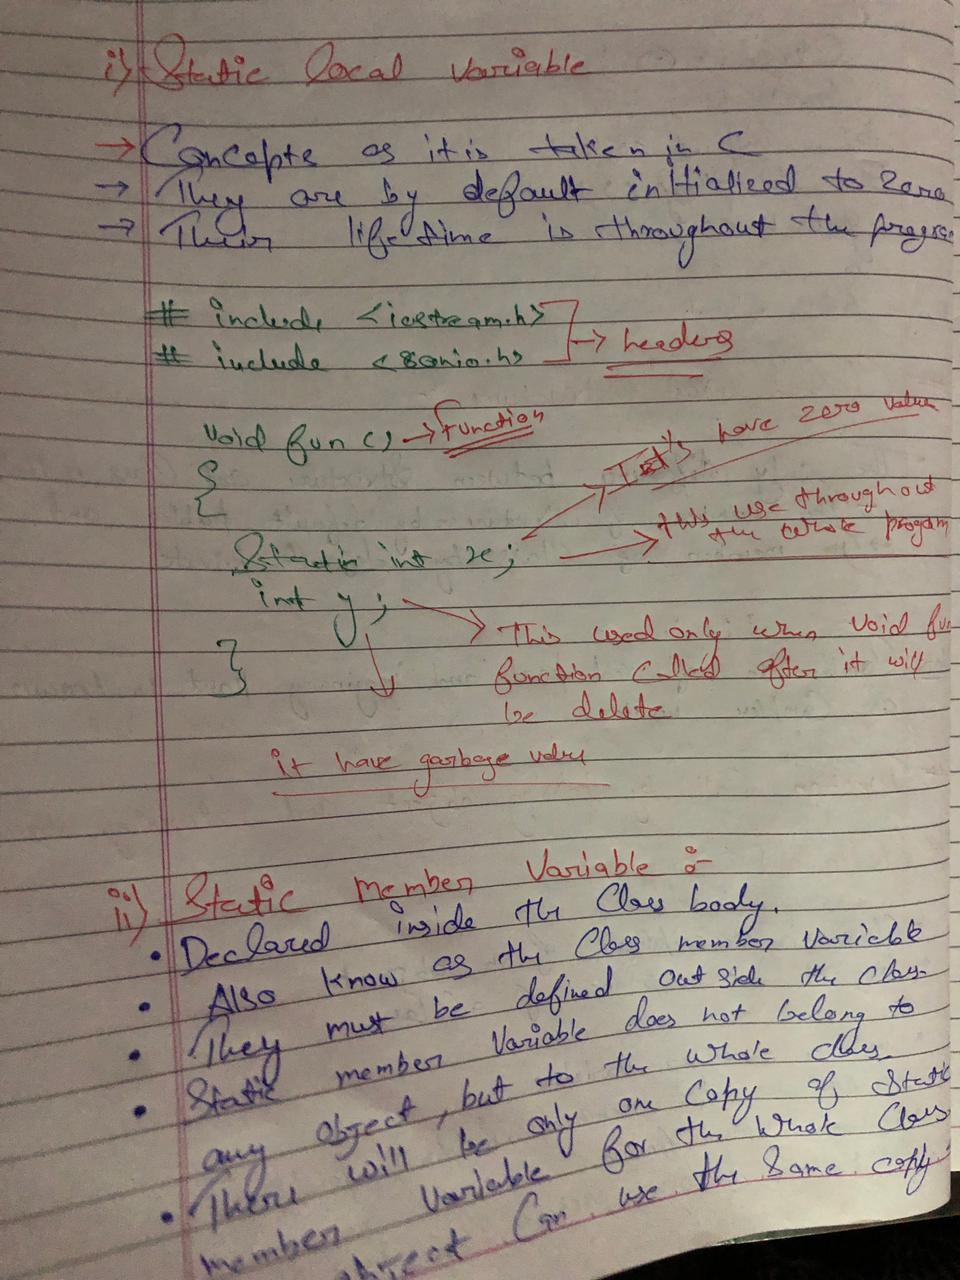 i) Static local variable
→ Concepts as it is taken in C
→ They are by default initialized to zero
→ Their lifetime is throughout the progra
# include <iostream.h>
# include <conio.h> → headers
void fun () → function
{
It's have zero value
this use throughout
the whole progam
Static int x;
int y;
This used only when void fun
function called after it will
be delete
}
it have garbage value
ii) Static member Variable :-
• Declared inside the Class body.
• Also know as the Class member variable
• They must be defined outside the class.
• Static member variable does not belong to
any object, but to the whole class.
• There will be only one Copy of static
member variable for the whole Class
object Can use the same copy